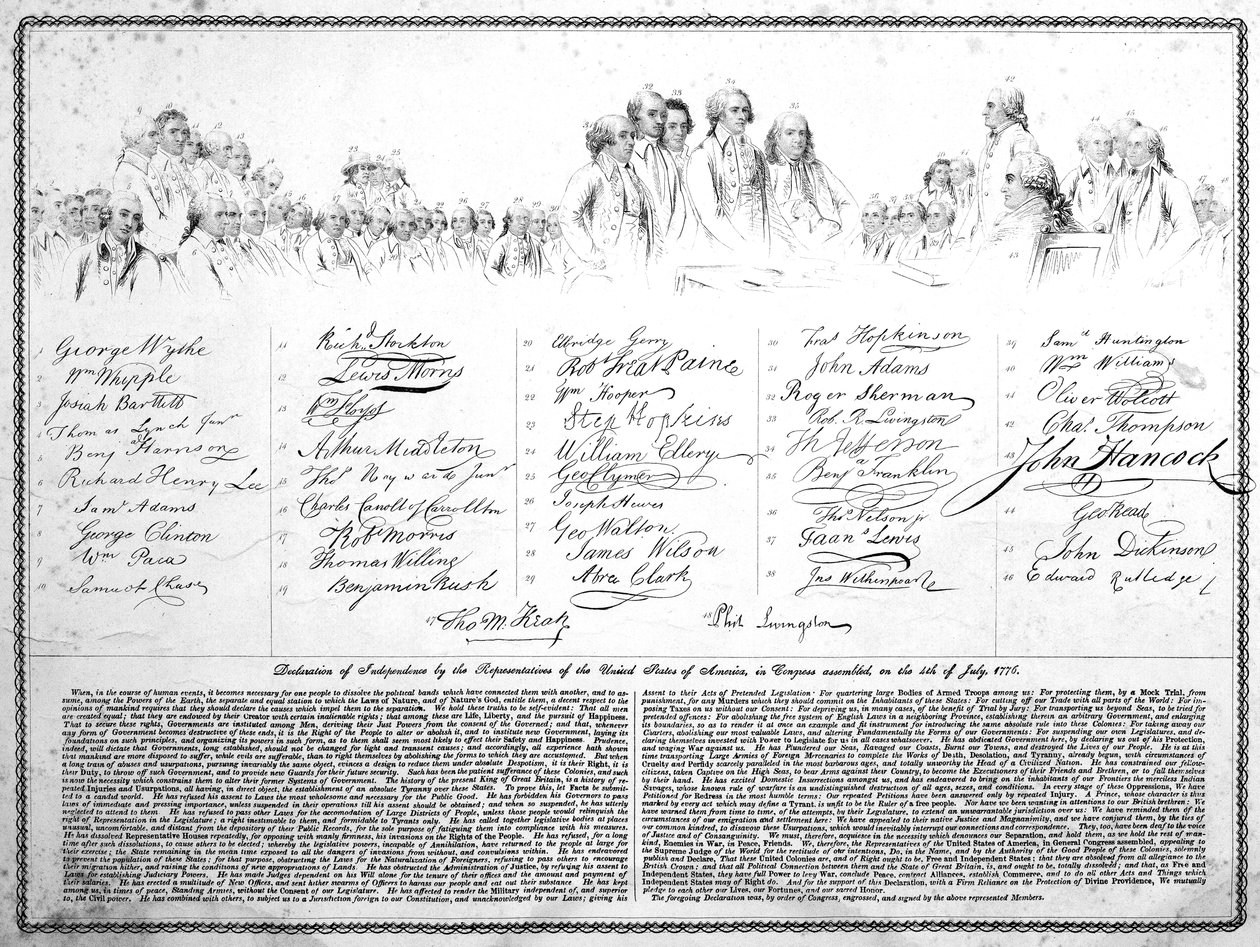 9
10
11
12
13
14
23
24
25
22
26
27
28
29
30
31
32
33
34
35
36
42
44
45
46
43
47
48
6
1 George Wythe
2 Wm Whipple
3 Josiah Bartlett
4 Thomas Lynch Junr
5 Benj Harrison
6 Richard Henry Lee
7 Saml Adams
8 George Clinton
9 Wm Paca
10 Samuel Chase
11 Richd Stockton
12 Lewis Morris
13 Wm Floyd
14 Arthur Middleton
15 Thos Heyward Junr
16 Charles Carroll of Carrollton
17 Robt Morris
18 Thomas Willing
19 Benjamin Rush
20 Elbridge Gerry
21 Robt Treat Paine
22 Wm Hooper
23 Step Hopkins
24 William Ellery
25 Geo Clymer
26 Joseph Hewes
27 Geo Walton
28 James Wilson
29 Abra Clark
30 Fras Hopkinson
31 John Adams
32 Roger Sherman
33 Rob. R. Livingston
34 Th Jefferson
35 Benja Franklin
36 Thos Nelson jr
37 Frans Lewis
38 Jno Witherspoon
39 Saml Huntington
40 Wm Williams
41 Oliver Wolcott
42 Chas. Thompson
43 John Hancock
44 Geo Read
45 John Dickinson
46 Edward Rutledge
47 Tho M. Kean
48 Phil Livingston
Declaration of Independence by the Representatives of the United States of America, in Congress assembled, on the 4th of July, 1776.
When, in the course of human events, it becomes necessary for one people to dissolve the political bands which have connected them with another, and to as-
sume, among the Powers of the Earth, the separate and equal station to which the Laws of Nature, and of Nature's God, entitle them, a decent respect to the
opinions of mankind requires that they should declare the causes which impel them to the separation. We hold these truths to be self-evident: That all men
are created equal; that they are endowed by their Creator with certain inalienable rights; that among these are Life, Liberty, and the pursuit of Happiness.
That to secure these rights, Governments are instituted among Men, deriving their Just Powers from the consent of the Governed; and that, whenever
any form of Government becomes destructive of these ends, it is the Right of the People to alter or abolish it, and to institute new Government, laying its
foundations on such principles, and organizing its powers in such form, as to them shall seem most likely to effect their Safety and Happiness. Prudence,
indeed, will dictate that Governments, long established, should not be changed for light and transient causes; and accordingly, all experience hath shown
that mankind are more disposed to suffer, while evils are sufferable, than to right themselves by abolishing the forms to which they are accustomed. But when
a long train of abuses and usurpations, pursuing invariably the same object, evinces a design to reduce them under absolute Despotism, it is their Right, it is
their Duty, to throw off such Government, and to provide new Guards for their future security. Such has been the patient sufferance of these Colonies, and such
is now the necessity which constrains them to alter their former Systems of Government. The history of the present King of Great Britain, is a history of re-
peated Injuries and Usurpations, all having, in direct object, the establishment of an absolute Tyranny over these States. To prove this, let Facts be submit-
ted to a candid world. He has refused his assent to Laws the most wholesome and necessary for the Public Good. He has forbidden his Governors to pass
laws of immediate and pressing importance, unless suspended in their operations till his assent should be obtained; and when so suspended, he has utterly
neglected to attend to them. He has refused to pass other Laws for the accomodation of Large Districts of People, unless those people would relinquish the
right of Representation in the Legislature; a right inestimable to them, and formidable to Tyrants only. He has called together legislative bodies at places
unusual, uncomfortable, and distant from the depository of their Public Records, for the sole purpose of fatiguing them into compliance with his measures.
He has dissolved Representative Houses repeatedly, for opposing with manly firmness, his invasions on the Rights of the People. He has refused, for a long
time after such dissolutions, to cause others to be elected; whereby the legislative powers, incapable of Annihilation, have returned to the people at large for
their exercise; the State remaining in the mean time exposed to all the dangers of invasions from without, and convulsions within. He has endeavored
to prevent the population of these States; for that purpose, obstructing the Laws for the Naturalization of Foreigners, refusing to pass others to encourage
their migration hither, and raising the conditions of new appropriations of Lands. He has obstructed the Administration of Justice, by refusing his assent to
Laws for establishing Judiciary Powers. He has made Judges dependent on his Will alone for the tenure of their offices and the amount and payment of
their salaries. He has erected a multitude of New Offices, and sent hither swarms of Officers to harrass our people and eat out their substance. He has kept
among us, in times of peace, Standing Armies, without the Consent of our Legislature. He has affected to render the Military independent of, and superior
to, the Civil power. He has combined with others, to subject us to a Jurisdiction forign to our Constitution, and unacknowledged by our Laws; giving his
Assent to their Acts of Pretended Legislation: For quartering large Bodies of Armed Troops among us: For protecting them, by a Mock Trial, from
punishment, for any Murders which they should commit on the Inhabitants of these States: For cutting off our Trade with all parts of the World: For im-
posing Taxes on us without our Consent: For depriving us, in many cases, of the benefit of Trial by Jury: For transporting us beyond Seas, to be tried for
pretended offences: For abolishing the free system of English Laws in a neighboring Province, establishing therein an arbitrary Government, and enlarging
its boundaries, so as to render it at once an example and fit instrument for introducing the same absolute rule into these Colonies: For taking away our
Charters, abolishing our most valuable Laws, and altering Fundamentally the Forms of our Governments: For suspending our own Legislatures, and de-
claring themselves invested with Power to Legislate for us in all cases whatsoever. He has abdicated Government here, by declaring us out of his Protection,
and waging War against us. He has Plundered our Seas, Ravaged our Coasts, Burnt our Towns, and destroyed the Lives of our People. He is at this
time transporting Large Armies of Foreign Mercenaries to complete the Works of Death, Desolation, and Tyranny, already begun, with circumstances of
Cruelty and Perfidy scarcely paralleled in the most barbarous ages, and totally unworthy the Head of a Civilized Nation. He has constrained our fellow-
citizens, taken Captive on the High Seas, to bear Arms against their Country, to become the Executioners of their Friends and Brethren, or to fall themselves
by their hand. He has excited Domestic Insurrections amongst us, and has endeavored to bring on the Inhabitants of our Frontiers the merciless Indian
Savages, whose known rule of warfare is an undistinguished destruction of all ages, sexes, and conditions. In every stage of these Oppressions, We have
Petitioned for Redress in the most humble terms: Our repeated Petitions have been answered only by repeated Injury. A Prince, whose character is thus
marked by every act which may define a Tyrant, is unfit to be the Ruler of a free people. Nor have we been wanting in attentions to our British brethren: We
have warned them from time to time, of the attempts, by their Legislature, to extend an unwarrantable jurisdiction over us: We have reminded them of the
circumstances of our emigration and settlement here: We have appealed to their native Justice and Magnanimity, and we have conjured them, by the ties of
our common kindred, to disavow these Usurpations, which would inevitably interrupt our connections and correspondence. They, too, have been deaf to the voice
of Justice and of Consanguinity. We must, therefore, acquiesce in the necessity which denounces our Separation, and hold them, as we hold the rest of man-
kind, Enemies in War, in Peace, Friends. We, therefore, the Representatives of the United States of America, in General Congress assembled, appealing to
the Supreme Judge of the World for the rectitude of our intentions, Do, in the Name, and by the Authority of the Good People of these Colonies, solemnly
publish and Declare, That these United Colonies are, and of Right ought to be, Free and Independent States; that they are absolved from all allegiance to the
British Crown; and that all Political Connection between them and the State of Great Britain, is, and ought to be, totally dissolved; and that, as Free and
Independent States, they have full Power to levy War, conclude Peace, contract Alliances, establish Commerce, and to do all other Acts and Things which
Independent States may of Right do. And for the support of this Declaration, with a Firm Reliance on the Protection of Divine Providence, We mutually
pledge to each other our Lives, our Fortunes, and our sacred Honor.
The foregoing Declaration was, by order of Congress, engrossed, and signed by the above represented Members.